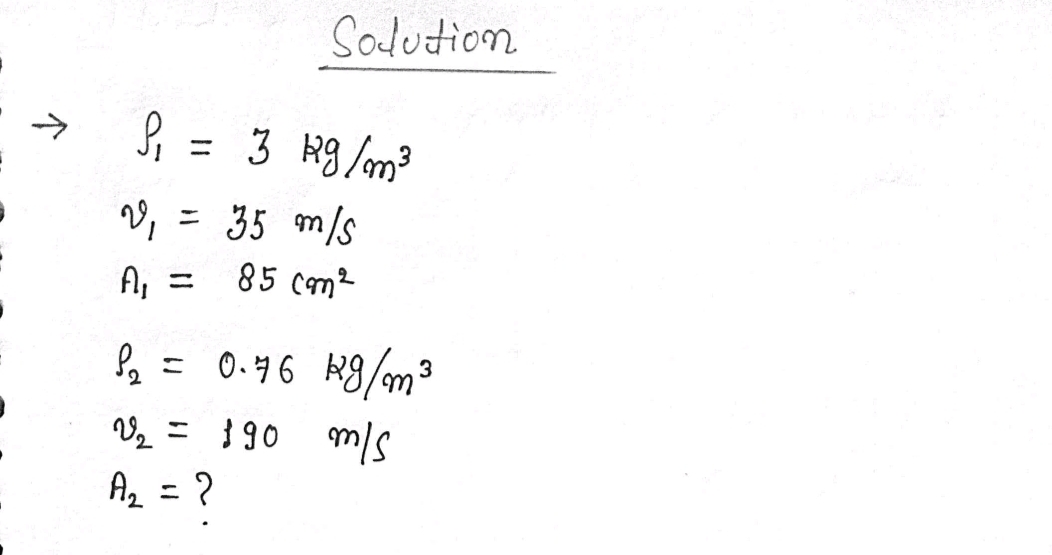 Solution
→ ρ₁ = 3 kg/m³
v₁ = 35 m/s
A₁ = 85 cm²
ρ₂ = 0.76 kg/m³
v₂ = 190 m/s
A₂ = ?